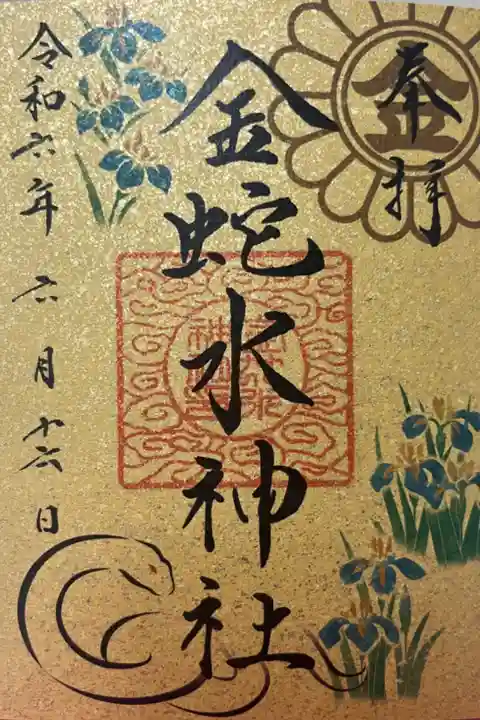 奉拝
金
金蛇水神社
令和六年 六月十六日